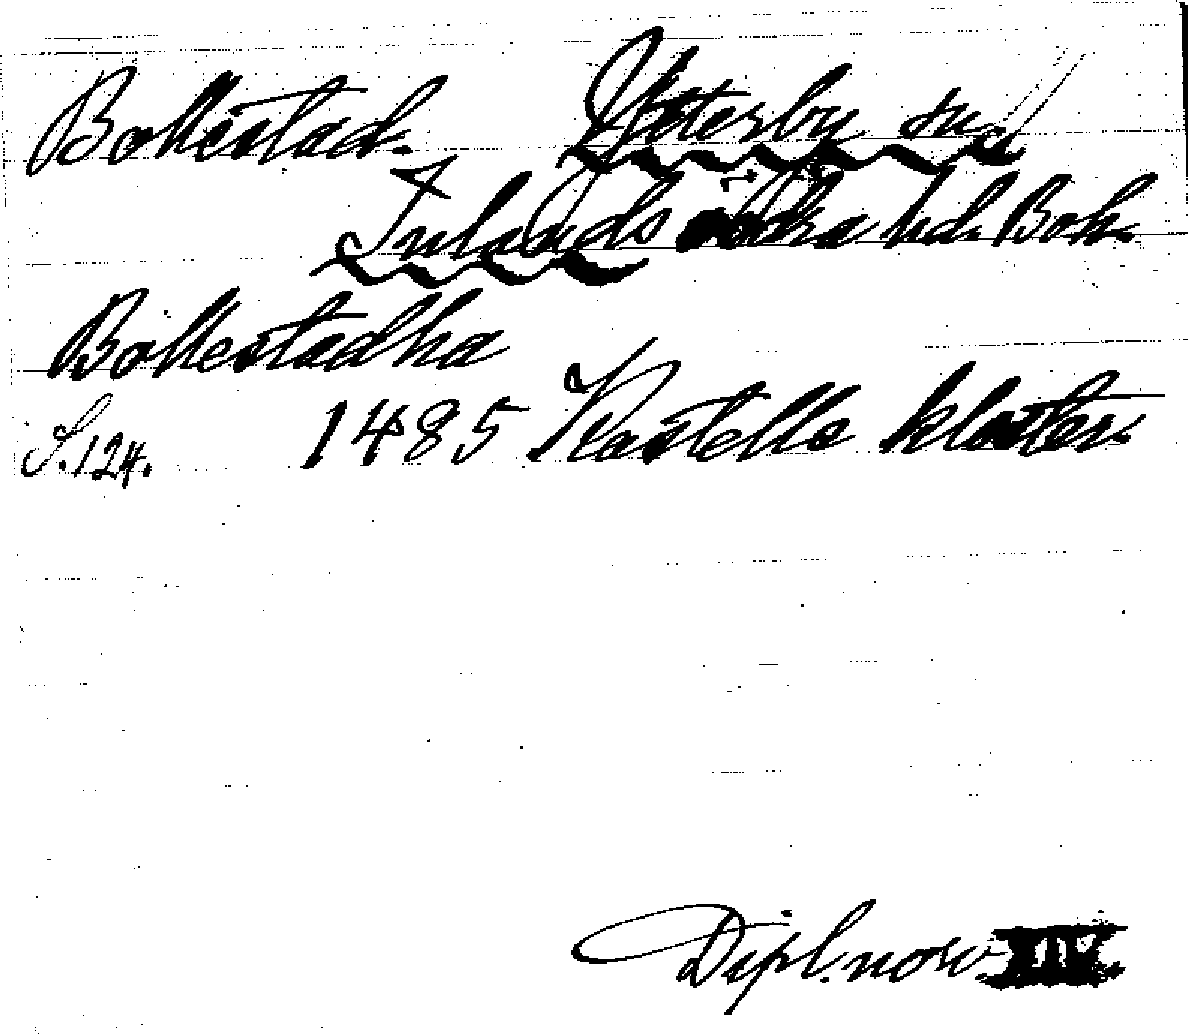 Bollestad. Ytterby sn.
Inlands södra hd. Boh.
Bollestadha
S. 124. 1485 Kastelle kloster.
Dipl. norv. XIV.